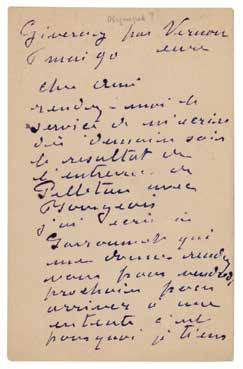 Giverny par Vernon
eure
7 mai 90
cher ami
rendez-moi le
service de m'ecrire
dès demain soir
le resultat de
l'entrevue de
Pelletan avec
Bourgeois
j'ai ecrit à
qui
me donne rendez
vous pour vendredi
prochain pour
arriver à une
entente c'est
pourquoi je tiens